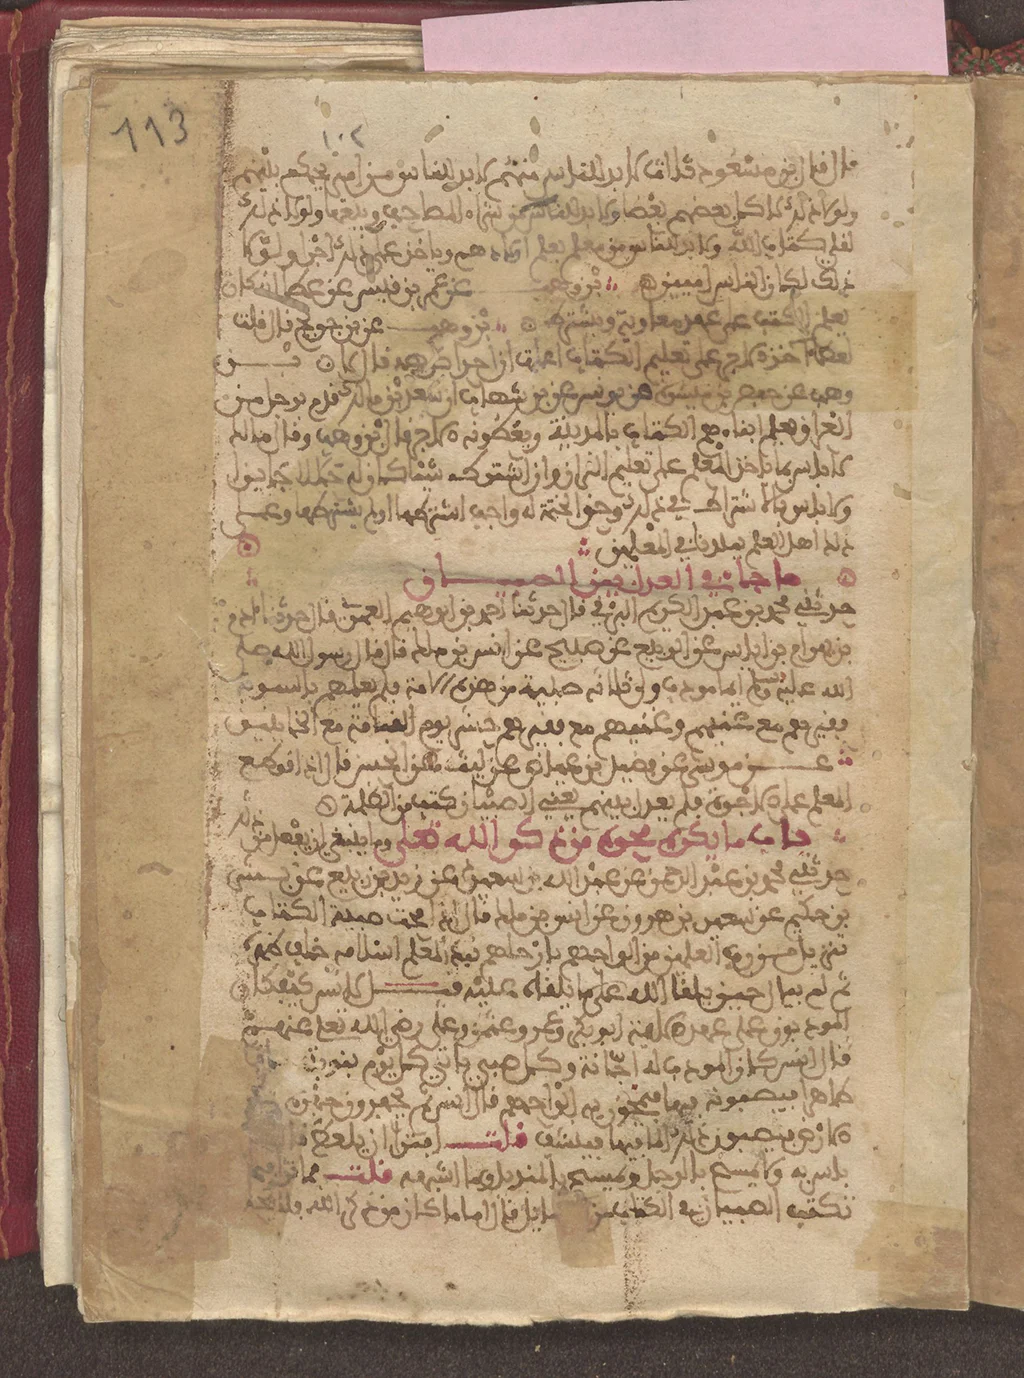 113
١٠٢
قال قال ابن مسعود ثلاث لا بد للناس منهم لا بد للناس من امير يحكم بينهم
ولولا ذلك لاكل بعضهم بعضا ولا بد للناس من شراء المصاحف وبيعها ولولا ذلك
لقل كتاب الله ولا بد للناس من معلم يعلم اولادهم وياخذ على ذلك اجرا ولولا
ذلك لكان الناس اميين ابن وهب عن عمر بن قيس عن عطا انه كان
يعلم الكتب على عهد معاوية ويشترط ابن وهب عن ابن جريج قال قلت
لعطاء آخذ اجرا على تعليم الكتاب اعلمت ان احدا كرهه قال لا ابن
وهب عن حفص بن ميسرة عن يونس عن ابن شهاب ان سعد بن مالك قدم برجل من
العراق يعلم ابناءهم الكتاب بالمدينة ويعطونه الاجر قال ابن وهب وقال مالك
لا باس بما ياخذ المعلم على تعليم القران وان اشترط شيئا كان له حلالا جايزا
ولا باس بالاشتراط في ذلك وحق الختمة له واجب اشترطها او لم يشترطها وعلى
ذلك اهل العلم ببلدنا في المعلمين
ما جاء في العدل بين الصبيان
حدثني محمد بن عبد الكريم البرقي قال حدثنا احمد بن ابرهيم العمري قال حدثنا ادم
بن بهرام بن اياس عن الربيع عن صبيح عن انس بن مالك قال قال رسول الله صلى
الله عليه وسلم ايما مودب ولي ثلاثة صبية من هذه الامة فلم يعلمهم بالسوية
فقيرهم مع غنيهم وغنيهم مع فقيرهم حشر يوم القيامة مع الخاينين
عن موسى عن فضيل بن عياض عن ليث عن الحسن قال اذا قوطع
المعلم على الاجرة فلم يعدل بينهم يعني الصبيان كتب من الظلمة
باب ما يكره محوه من ذكر الله تعلى وما ينبغي ان يفعل من ذلك
حدثني محمد بن عبد الرحمن عن عبد الله بن سعيد عن زيد بن ربيع عن بشر
بن حكيم عن سعيد بن هرون عن انس بن مالك قال اذا محت صبية الكتاب
تنزيل من رب العلمين من الواحهم بارجلهم نبذ المعلم اسلامه خلف ظهره
ثم لم يبال حين يلقا الله على ما يلقاه عليه قيل لانس كيف كان
المودبون على عهد الايمة ابو بكر وعمر وعثمن وعلي رضي الله تعلى عنهم
قال انس كان المودب له اجانة وكل صبي ياتي كل يوم بنوبته
ماء طاهرا فيصبونه فيها فيمحون به الواحهم قال انس ثم يحفرون حفرة
الارض فيصبون ذلك الماء فيها فينشف قلت افترى ان يلعط قال
باس به ولا يمسح بالرجل ويمسح بالمنديل وما اشبهه قلت فما ترى فيما
تكتب الصبيان في الكتاب من المسايل قال اما ما كان من ذكر الله فلا